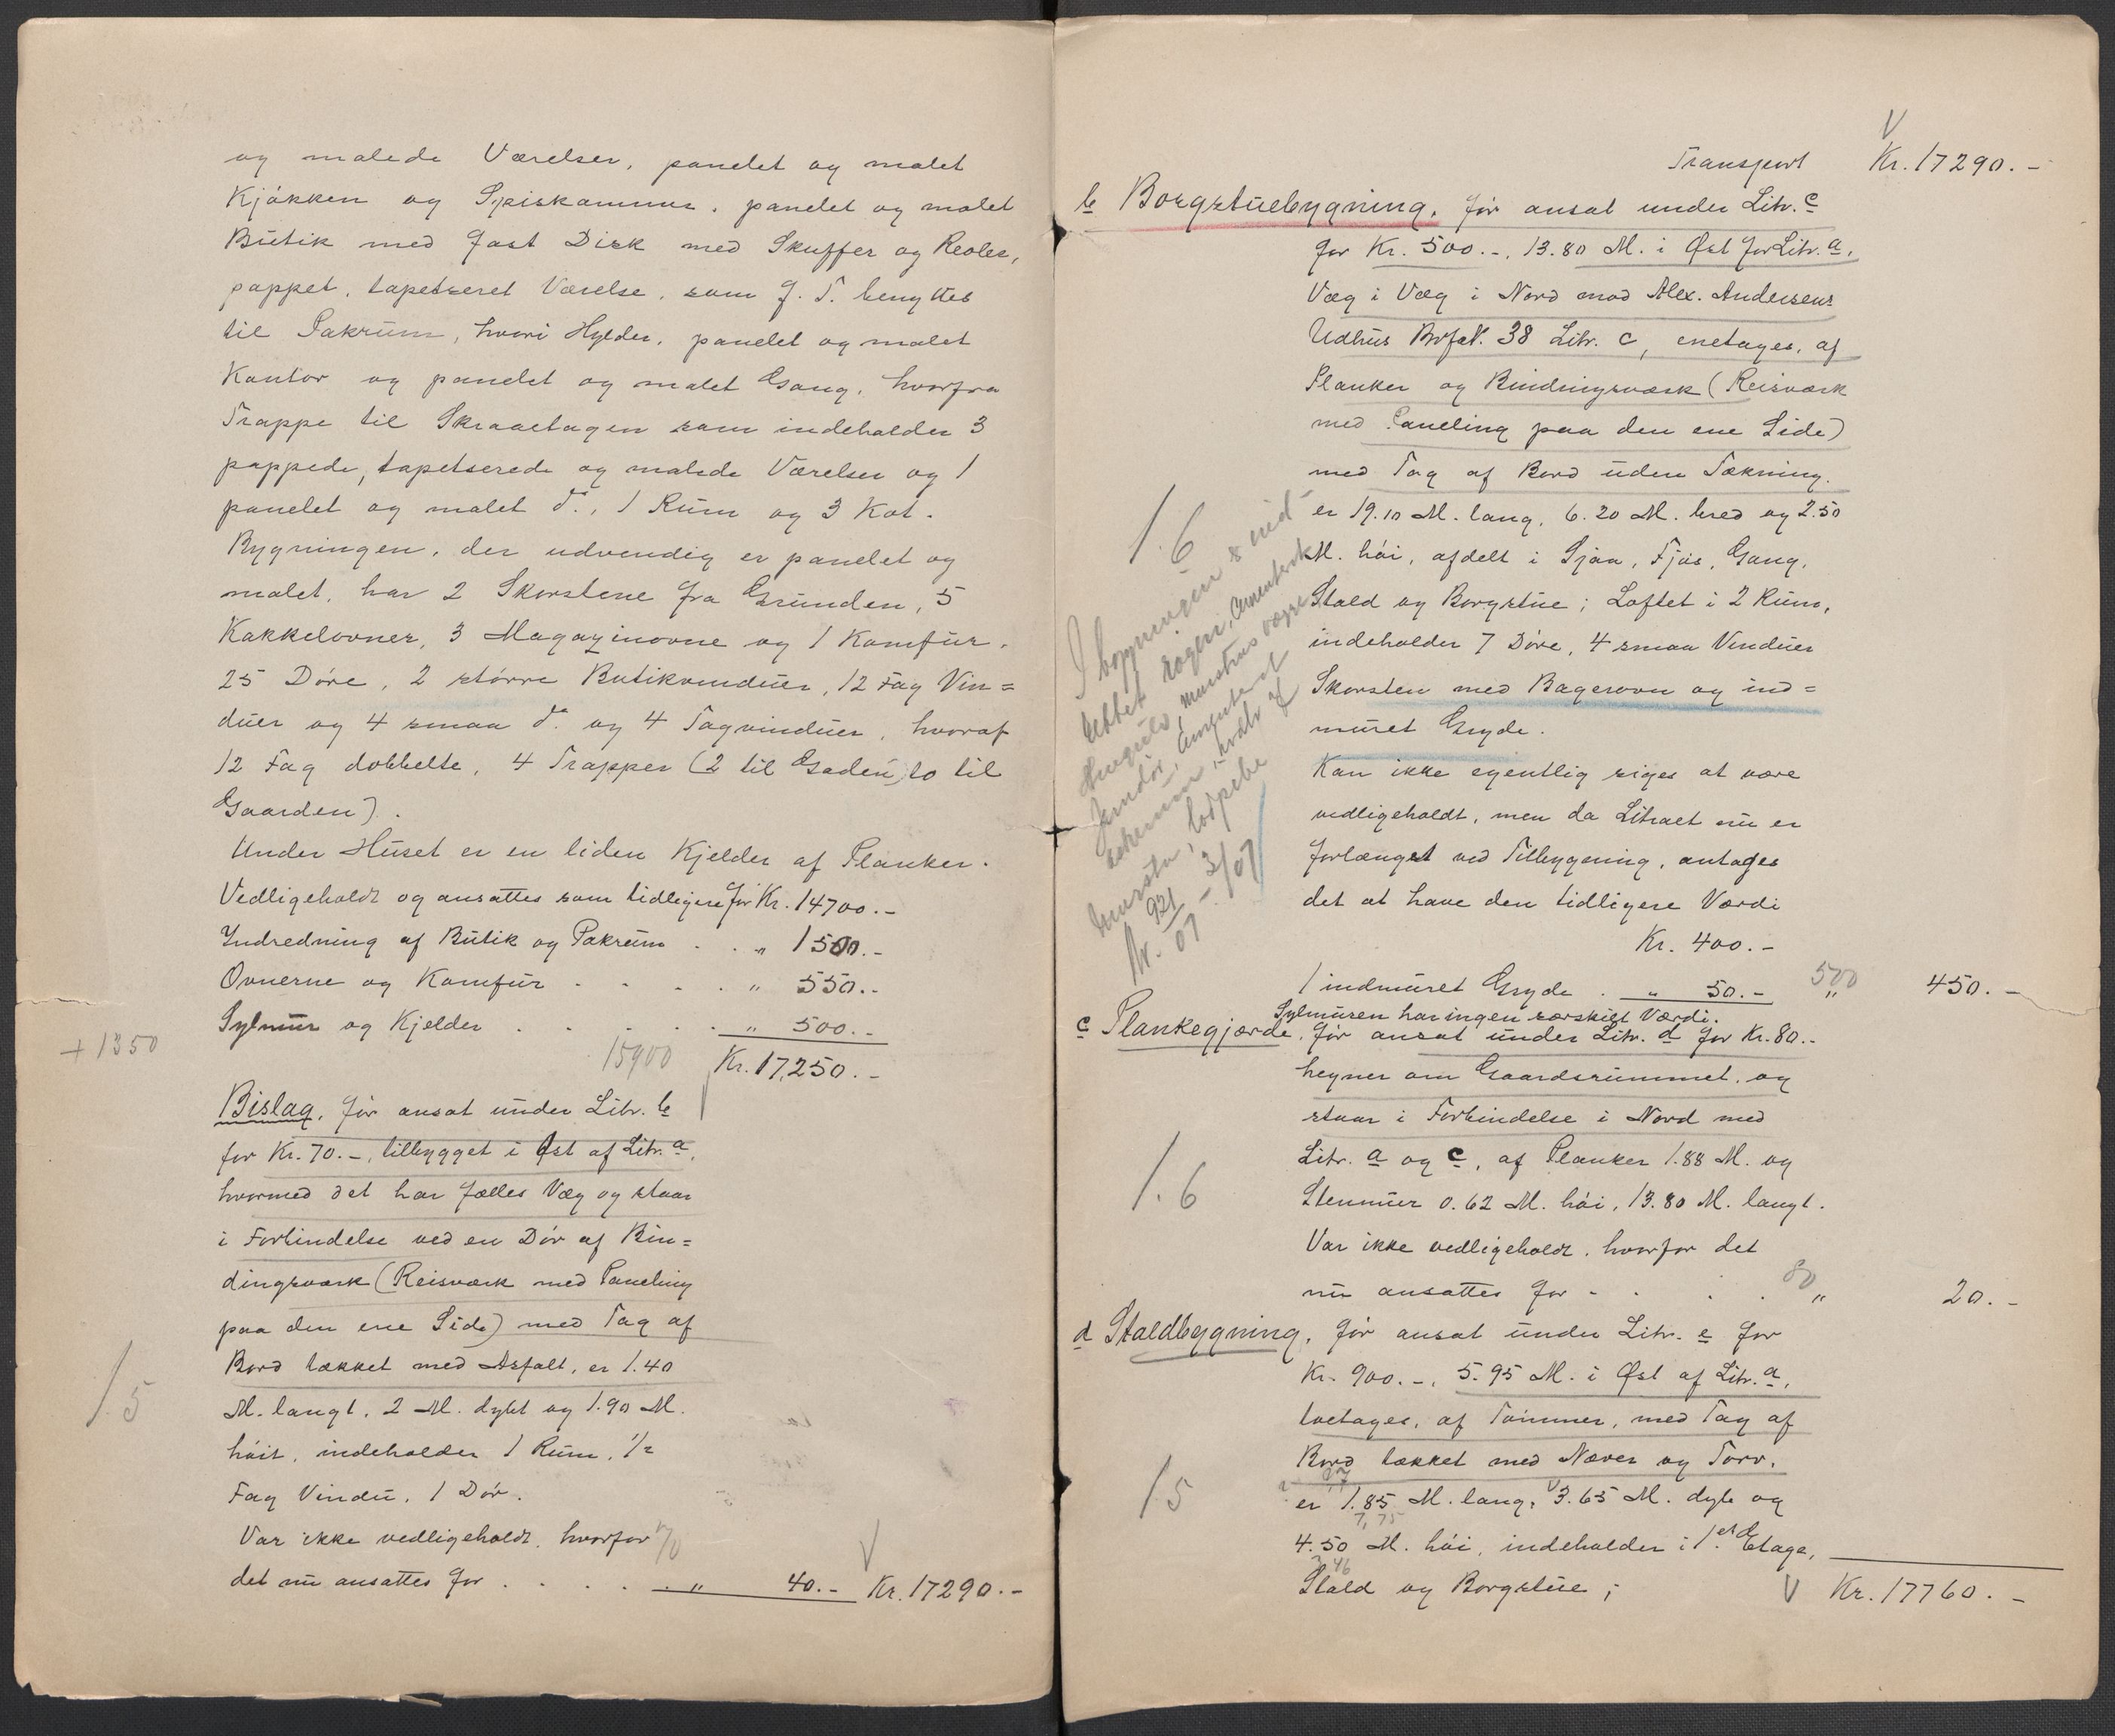 og malede Værelser, panelet og malet
Kjøkken og Spiskammer, panelet og malet
Butik med fast Disk med Skuffer og Reoler,
pappet, tapetseret Værelse, som f. T. benyttes
til Pakrum, hvori Hylder, panelet og malet
Kontor og panelet og malet Gang, hvorfra
Trappe til Skraaetagen som indeholder 3
pappede, tapetserede og malede Værelser og 1
panelet og malet do., 1 Rum og 3 Kot.
Bygningen, der udvendig er panelet og
malet, har 2 Skorstene fra Grunden, 5
Kakkelovner, 3 Magazinovne og 1 Komfur,
25 Døre, 2 større Butikvinduer, 12 Fag Vin=
duer og 4 smaa do. og 4 Tagvinduer, hvoraf
12 Fag dobbelte, 4 Trapper (2 til Gaden, to til
Gaarden).
Under Huset er en liden Kjelder af Planker.
Vedligeholdt og ansattes som tidligere for Kr. 14700.-
Indredning af Butik og Pakrum . . " 1500.-
Ovnerne og Komfur . . . . " 550.-
Sylmur og Kjelder . . . . . " 500.-
+ 1350
15900 Kr. 17,250.-
Bislag, før ansat under Litr. b
for Kr. 70.-, tilbygget i Øst af Litr. a,
hvormed det har fælles Væg og staar
i Forbindelse ved en Dør af Bin=
dingsværk (Reisværk med Paneling
paa den ene Side) med Tag af
Bord tækket med Asfalt, er 1.40
1.5
M. langt, 2 M. dybt og 1.90 M.
høit, indeholder 1 Rum, 1/2
Fag Vindu, 1 Dør.
Var ikke vedligeholdt, hvorfor 70
det nu ansattes for . . . . . " 40.- Kr. 17290.-
Transport Kr. 17290.-
b Borgstuebygning, før ansat under Litr. c
for Kr. 500.-, 13.80 M. i Øst for Litr. a,
Væg i Væg i Nord mod Alex. Andersens
Udhus Brf. N. 38 Litr. c, enetages, af
Planker og Bindingsværk (Reisværk
med Paneling paa den ene Side)
med Tag af Bord uden Tækning,
er 19.10 M. lang, 6.20 M. bred og 2.50
1.6
M. høi, afdelt i Sjaa, Fjøs, Gang,
Stald og Borgstue; Loftet i 2 Rum,
indeholder 7 Døre, 4 smaa Vinduer
Skorsten med Bagerovn og ind=
muret Gryde.
I bygningen
3/07
Nr. 921/07
Kan ikke egentlig siges at være
vedligeholdt, men da Litraet nu er
forlænget ved Tilbygning, antages
det at have den tidligere Værdi
Kr. 400.-
1 indmuret Gryde . " 50.- 500 " 450.-
Sylmuren har ingen særskilt Værdi.
c Plankegjærde, før ansat under Litr. d for Kr. 80.-
hegner om Gaardsrummet, og
staar i Forbindelse i Nord med
Litr. a og c, af Planker 1.88 M. og
1.6
Stenmur 0.62 M. høi, 13.80 M. langt.
Var ikke vedligeholdt, hvorfor det
nu ansattes for . . . . 80 " 20.-
d Staldbygning, før ansat under Litr. e for
Kr. 900.-, 5.95 M. i Øst af Litr. a,
toetages, af Tømmer, med Tag af
Bord tækket med Næver og Torv,
1.5
er 1.85 M. lang, 3.65 M. dyb og
4.50 M. høi, indeholder i 1ste Etage,
Stald og Borgstue; Kr. 17760.-